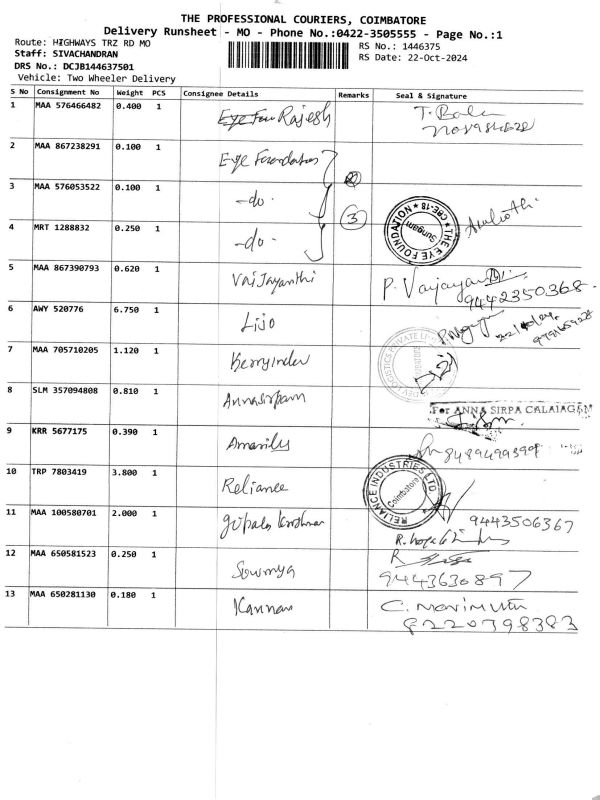 THE PROFESSIONAL COURIERS, COIMBATORE
Delivery Runsheet - MO - Phone No.:0422-3505555 - Page No.:1
Route: HIGHWAYS TRZ RD MO
Staff: SIVACHANDRAN
DRS No.: DCJB144637501
Vehicle: Two Wheeler Delivery
RS No.: 1446375
RS Date: 22-Oct-2024
S No Consignment No Weight PCS Consignee Details Remarks Seal & Signature
1 MAA 576466482 0.400 1 Rajesh T. Bala
2 MAA 867238291 0.100 1 Eye Foundation
3 MAA 576053522 0.100 1 -do- 3 THE EYE FOUNDATION * CBE-18 * Sungam
4 MRT 1288832 0.250 1 -do-
5 MAA 867390793 0.620 1 Vaijayanthi P. Vaijayanthi
9442350368
6 AWY 520776 6.750 1 Lijo
7 MAA 705710205 1.120 1
8 SLM 357094808 0.810 1 Annasirpam For ANNA SIRPA CALAIAGAM
9 KRR 5677175 0.390 1 Amarilys 8489499399
10 TRP 7803419 3.800 1 Reliance RELIANCE INDUSTRIES LTD. Coimbatore
11 MAA 100580701 2.000 1 gopala krishnan 9443506367
12 MAA 650581523 0.250 1 Sowmya R
9443630897
13 MAA 650281130 0.180 1 Kannan C. Marimuthu
8220398383